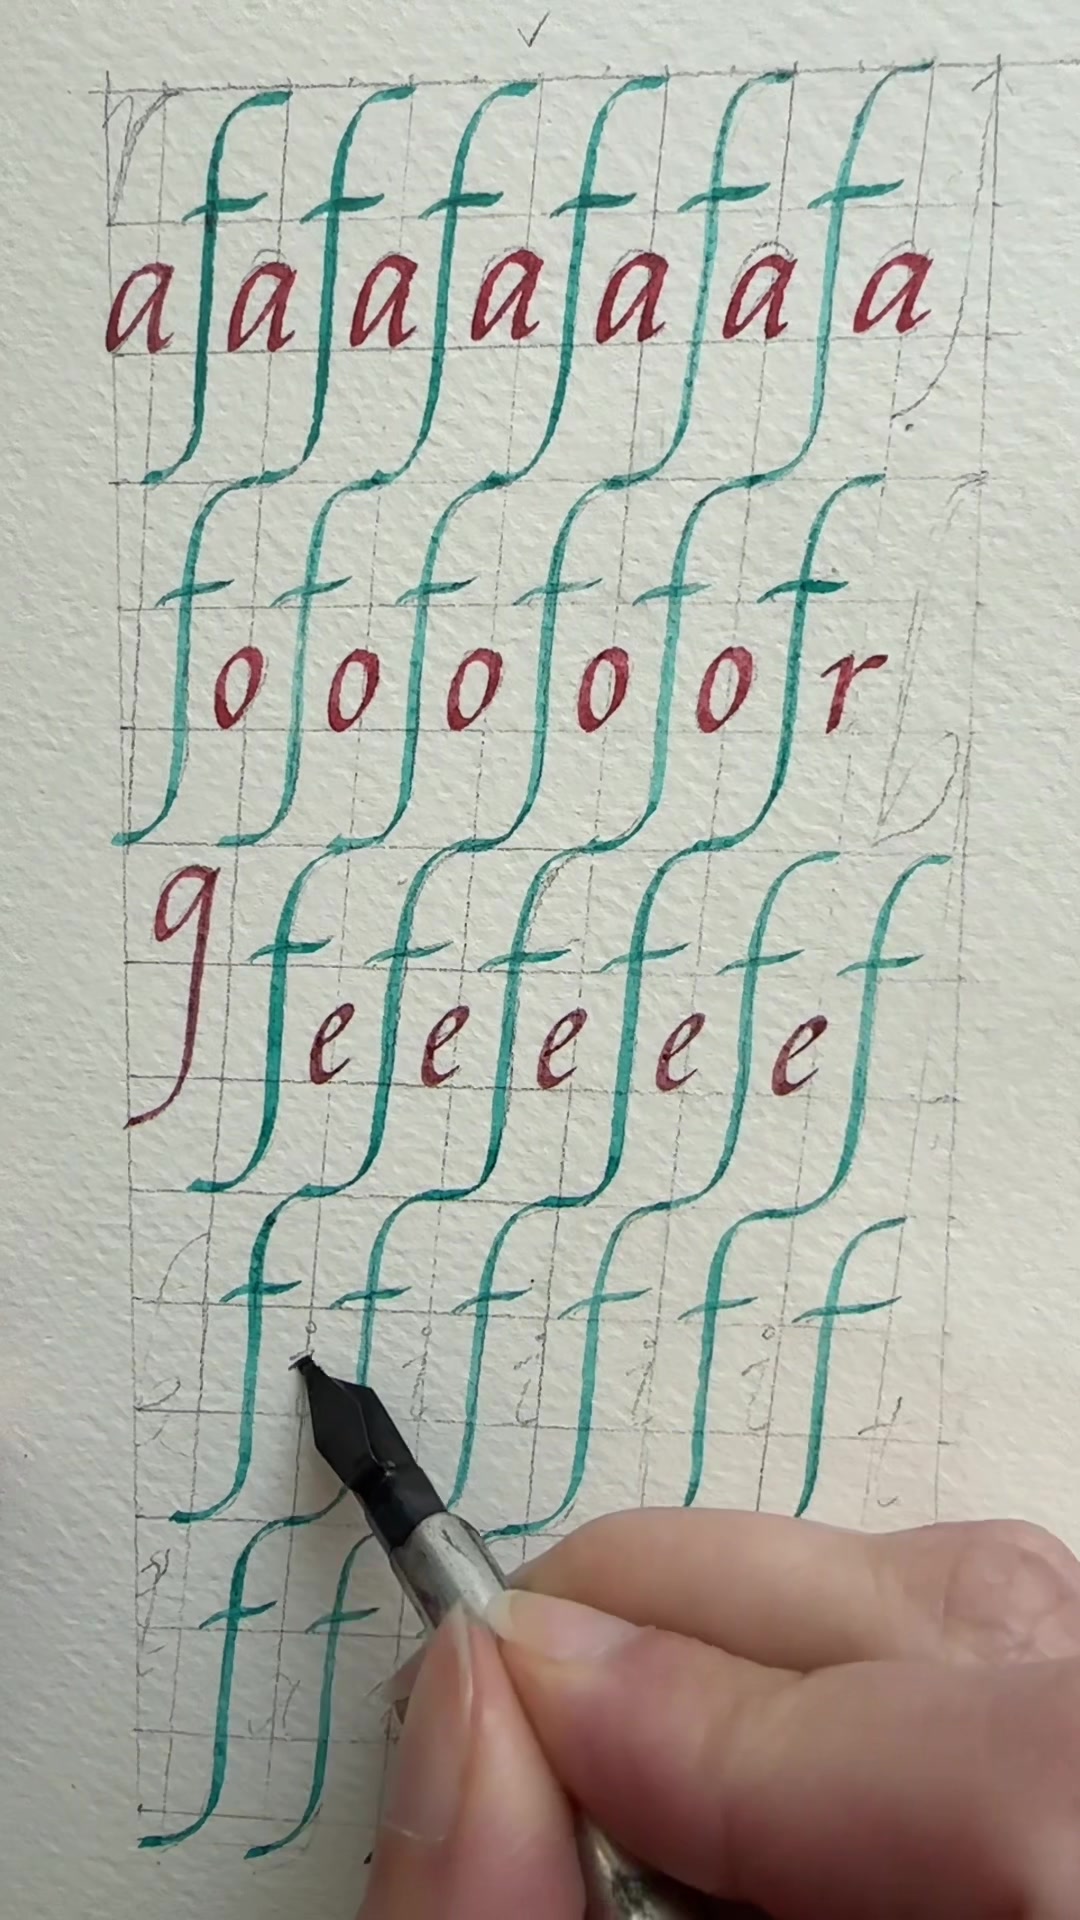 afafafafafafa
fofofofofofr
gfefefefefef
ffffff
ff